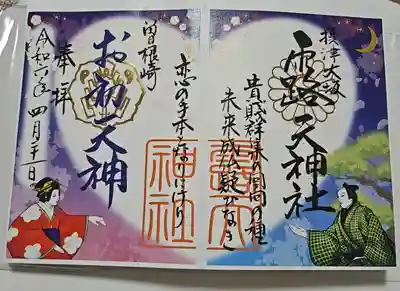 摂津大坂
露天神社
貴賎群集の回向の種
未来成仏疑ひなき
曽根崎
恋の手本となりにけり
お初天神
奉拝
令和六年四月二十一日
露天
神社